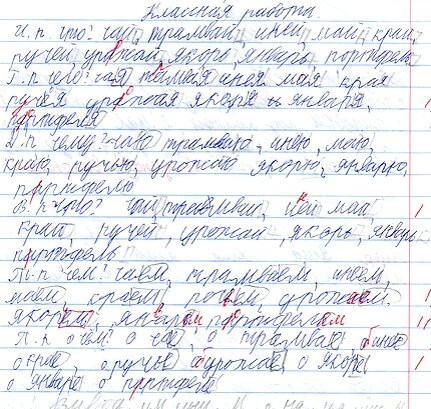 Классная работа.
И. п. что? чай, трамвай, иней, май, край,
ручей, урожай, якорь, январь, портфель
Р. п чего? чая трамвая инея мая края
ручья урожая якоря января,
портфеля
Д. п чему? чаю трамваю, инею, маю,
краю, ручью, урожаю якорю, январю,
портфелю
В. п что? чай, трамвай, иней май
край, ручей, урожай, якорь, январь
портфель
Т. п чем? чаем, трамваем, инеем,
маем, краем, ручьем урожаем
якорем, январем портфелем
П. п. о чём? о чае, о трамвае, о инее
о крае, о ручье о урожае о якоре
о январе о портфеле